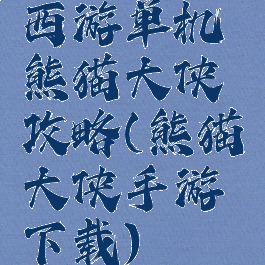 西游单机
熊猫大侠
攻略(熊猫
大侠手游
下载)